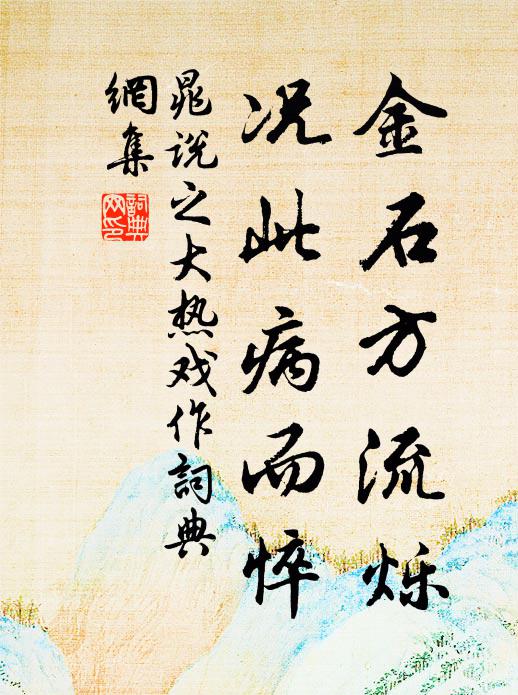 金石方流烁
况此病而悴
晁说之大热戏作词典
網集
詞典网印